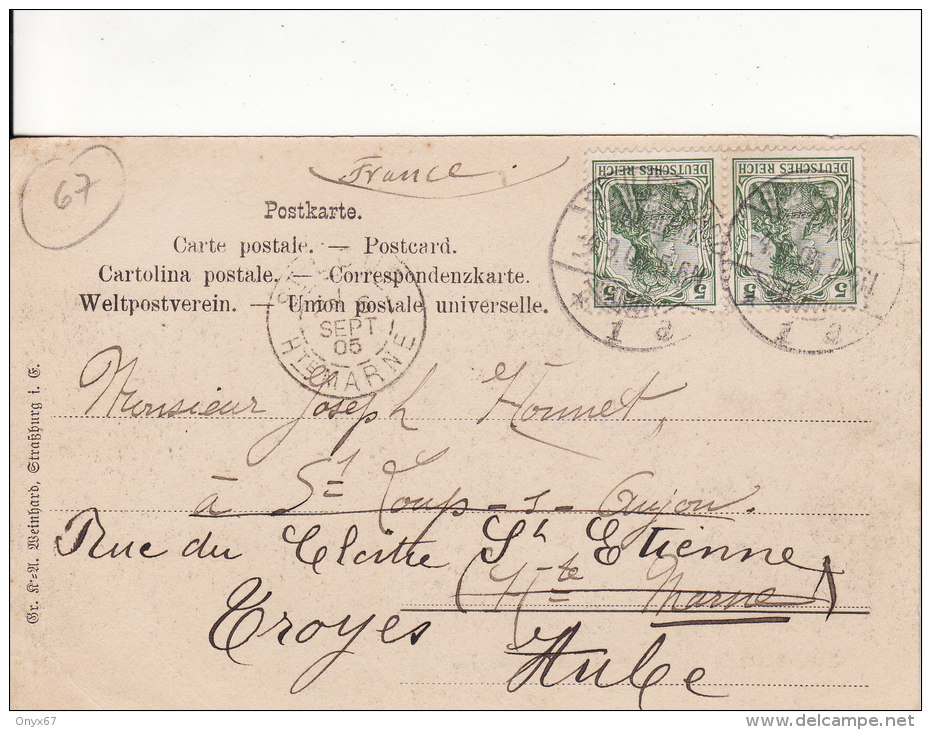 67
France
Postkarte.
Carte postale. — Postcard.
Cartolina postale. — Correspondenzkarte.
Weltpostverein. — Union postale universelle.
DEUTSCHES REICH
5 5
DEUTSCHES REICH
5 5
1 a
1 a
SEPT
05
HTE MARNE
Monsieur Joseph Honnet,
à St Loup-s-Aujon.
Rue du Cloitre St Etienne
(Hte Marne)
Troyes
Aube
Gr. K‘=A. Weinhard, Straßburg i. E.
Onyx67
www.delcampe.net